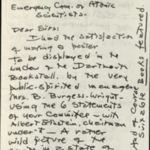 Emergency Com. of Atomic
Scientists.
Dear Sirs:
I had the satisfaction
of making a poster
to be displayed
under the Dartmouth
Bookstall, by the very
public-spirited manageress
Mrs. B. Burgess-Wright.
Using the 6 Statements
by your Committee – with
Albert Einstein, chairman
under it – A rather
wild picture of
And of Course
suitable Books featured.